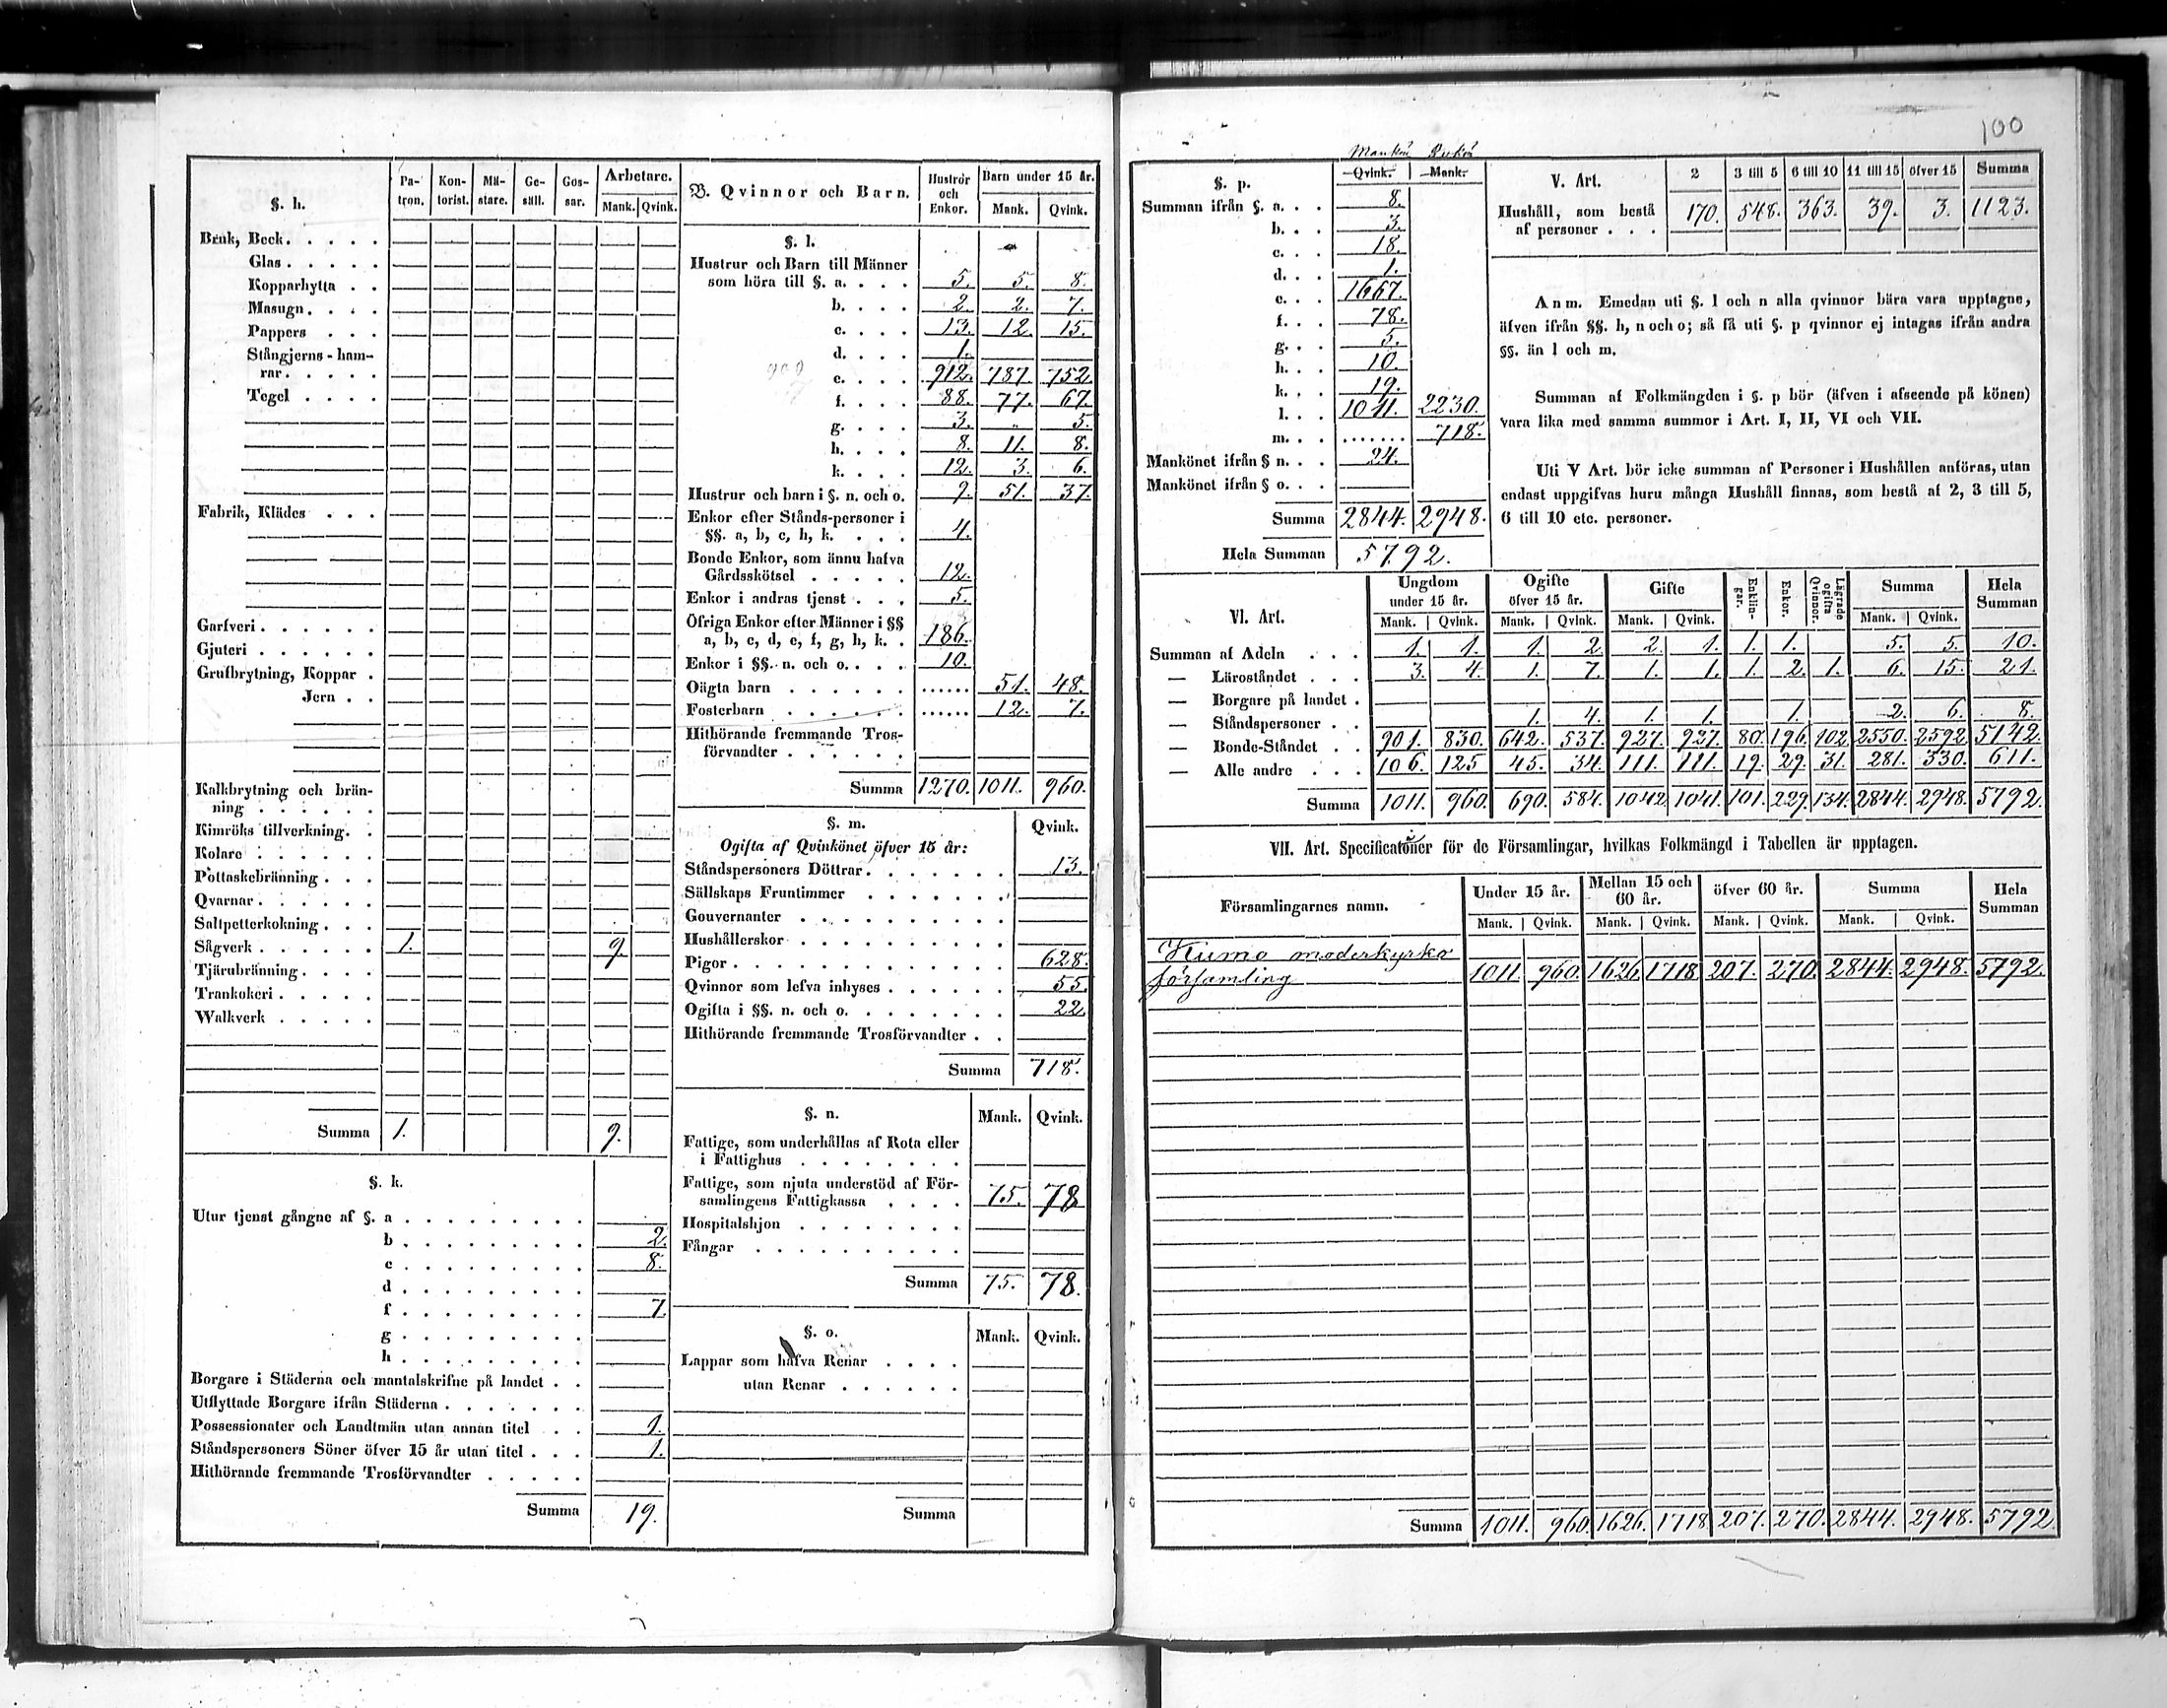 100
§. h.
Pa-tron. Kon-torist. Mä-stare. Ge-säll. Gos-sar. Arbetare. Mank. Qvink.
Bruk, Beck . . . . .
Glas . . . . .
Kopparhytta . .
Masugn . . . .
Pappers . . .
Stångjerns-ham-
rar . . . . .
Tegel . . . .
Fabrik, Klädes . . .
Garfveri . . . . . .
Gjuteri . . . . . .
Grufbrytning, Koppar .
Jern . .
Kalkbrytning och brän-
ning . . . . . .
Kimröks tillverkning. .
Kolare . . . . . .
Pottaskebränning . . .
Qvarnar . . . . . .
Saltpetterkokning . . .
Sågverk . . . . . . 1. 9.
Tjärubränning . . . .
Trankokeri . . . . .
Walkverk . . . . .
Summa 1. 9.
§. k.
Utur tjenst gångne af §. a . . . . . . . . .
b . . . . . . . . . 2.
c . . . . . . . . . 8.
d . . . . . . . . .
f . . . . . . . . . 7.
g . . . . . . . . .
h . . . . . . . . .
Borgare i Städerna och mantalskrifne på landet . .
Utflyttade Borgare ifrån Städerna . . . . . . .
Possessionater och Landtmän utan annan titel . . 1.
Ståndspersoners Söner öfver 15 år utan titel . . . 1.
Hithörande fremmande Trosförvandter . . . . .
Summa 19.
B. Qvinnor och Barn. Hustror och Enkor. Barn under 15 år. Mank. Qvink.
§. l.
Hustrur och Barn till Männer
som höra till §. a. . . . 5. 5. 8.
b. . . . 2. 2. 7.
c. . . . 13. 12. 15.
d. . . . 1.
e. . . . 912. 787. 752.
f. . . . 88. 77. 67.
g. . . . 3. " 5.
h. . . . 8. 11. 8.
k. . . . 12. 3. 6.
Hustrur och barn i §. n. och o. 9. 51. 37.
Enkor efter Stånds-personer i
§§. a, b, c, h, k. . . . 4.
Bonde Enkor, som ännu hafva
Gårdsskötsel . . . . . 12.
Enkor i andras tjenst . . . 5.
Öfriga Enkor efter Männer i §§
a, b, c, d, e, f, g, h, k. . 186.
Enkor i §§. n. och o. . . . 10.
Oägta barn . . . . . . ...... 51. 48.
Fosterbarn . . . . . . ...... 12. 7.
Hithörande fremmande Tros-
förvandter . . . . . .
Summa 1270. 1011. 960.
§. m. Qvink.
Ogifta af Qvinkönet öfver 15 år:
Ståndspersoners Döttrar . . . . . . . 13.
Sällskaps Fruntimmer . . . . . . .
Gouvernanter . . . . . . . . . .
Hushållerskor . . . . . . . . . .
Pigor . . . . . . . . . . . . . 628.
Qvinnor som lefva inhyses . . . . . . 55.
Ogifta i §§. n. och o. . . . . . . . 22.
Hithörande fremmande Trosförvandter . .
Summa 718.
§. n. Mank. Qvink.
Fattige, som underhållas af Rota eller
i Fattighus . . . . . . . .
Fattige, som njuta understöd af För-
samlingens Fattigkassa . . . . 75. 78
Hospitalshjon . . . . . . . .
Fångar . . . . . . . . . .
Summa 75. 78.
§. o. Mank. Qvink.
Lappar som hafva Renar . . . .
utan Renar . . . . . .
Summa
Mankön
§. p. Qvink. Mank.
Summan ifrån §. a. . . 8.
b. . . 3.
c. . . 18.
d. . . 1.
e. . . 1667.
f. . . 78.
g. . . 5.
h. . . 10.
k. . . 19.
l. . . 1011. 2230.
m. . . ....... 718.
Mankönet ifrån § n. . . 24.
Mankönet ifrån § o. . .
Summa 2844. 2948.
Hela Summan 5792.
V. Art. 2 3 till 5 6 till 10 11 till 15 öfver 15 Summa
Hushåll, som bestå
af personer . . . 170. 548. 363. 39. 3. 1123.
Anm. Emedan uti §. l och n alla qvinnor böra vara upptagne,
äfven ifrån §§. h, n och o; så få uti §. p qvinnor ej intagas ifrån andra
§§. än l och m.
Summan af Folkmängden i §. p bör (äfven i afseende på könen)
vara lika med samma summor i Art. I, II, VI och VII.
Uti V Art. bör icke summan af Personer i Hushållen anföras, utan
endast uppgifvas huru många Hushåll finnas, som bestå af 2, 3 till 5,
6 till 10 etc. personer.
VI. Art. Ungdom under 15 år. Mank. Qvink. Ogifte öfver 15 år. Mank. Qvink. Gifte Mank. Qvink. Enklin-gar. Enkor. Lägrade ogifta Qvinnor. Summa Mank. Qvink. Hela Summan
Summan af Adeln . . . 1. 1. 1. 2. 2. 1. 1. 1. 5. 5. 10.
— Läroståndet . . . 3. 4. 1. 7. 1. 1. 1. 2. 1. 6. 15. 21.
— Borgare på landet .
— Ståndspersoner . . 1. 4. 1. 1. 1. 2. 6. 8.
— Bonde-Ståndet . . 901. 830. 642. 537. 927. 927. 80. 196. 102. 2550. 2592. 5142.
— Alle andre . . . 106. 125 45. 34. 111. 111. 19. 29. 31. 281. 330. 611.
Summa 1011. 960. 690. 584. 1042. 1041. 101. 229. 134. 2844. 2948. 5792.
VII. Art. Specificatoner för de Församlingar, hvilkas Folkmängd i Tabellen är upptagen.
Församlingarnes namn. Under 15 år. Mank. Qvink. Mellan 15 och 60 år. Mank. Qvink. öfver 60 år. Mank. Qvink. Summa Mank. Qvink. Hela Summan
Kumo moderkyrko
församling 1011. 960. 1626. 1718. 207. 270. 2844. 2948. 5792.
Summa 1011. 960. 1626. 1718. 207. 270. 2844. 2948. 5792.